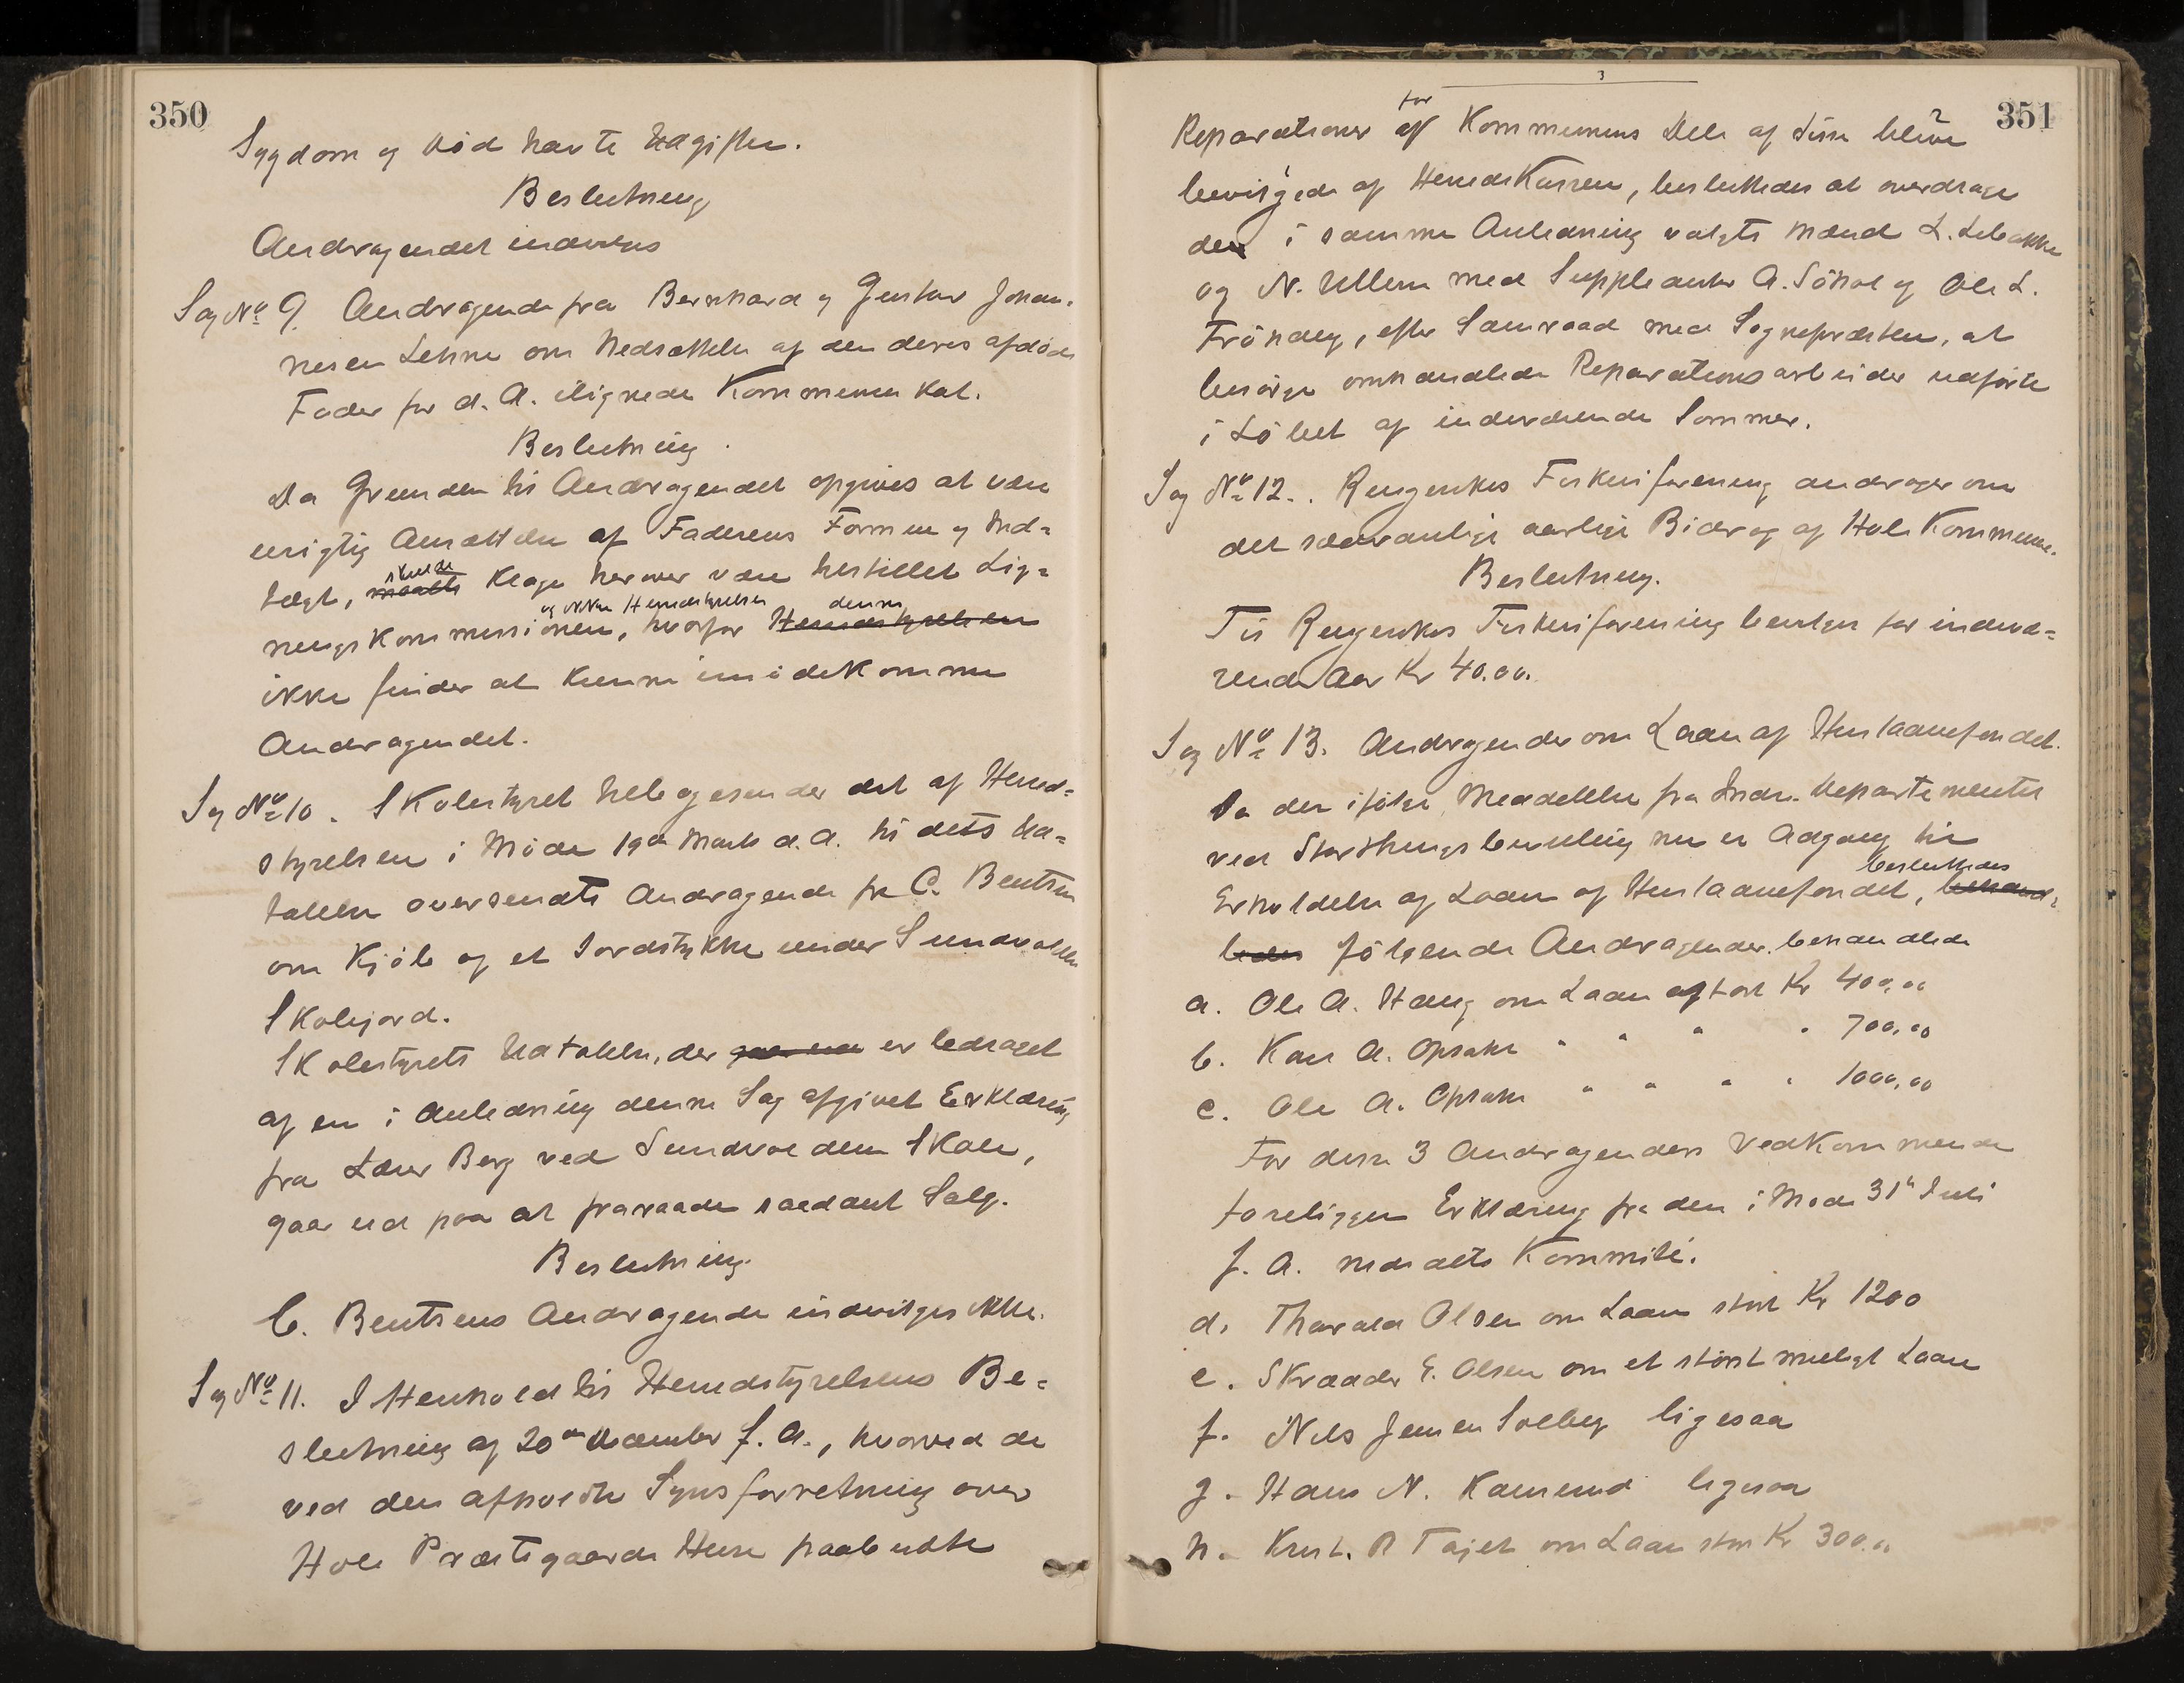 350
Sygdom og Død havte Udgifter.
Beslutning
Andragendet indvilges
Sag No 9. Andragende fra Bernhard og Gustav Johan-
nesen Lehne om Nedsættelse af den deres afdøde
Fader for d. A. ilignede Kommuneskat.
Beslutning.
Da Grunden til Andragendet opgives at være
urigtig Ansættelse af Faderens Formue og Ind-
tægt, maatte skulde Klage herover være indstillet Lig-
ningskommissionen, og ikke Herredstyrelsen hvorfor Herredstyrelsen denne
ikke finder at kunne imødekomme
Andragendet.
Sag No 10. Skolestyret tilbagesender det af Herred-
styrelsen i Møde 19de Marts d. A. til dets Ud-
talelse oversendte Andragende fra C. Bentsen
om Kjøb af et Jordstykke under Sundvolden
Skolejord.
Skolestyrets Udtalelse, der gaar ud er ledsaget
af en i Anledning denne Sag afgivet Erklæring
fra Lærer Berg ved Sundvolden Skole,
gaar ud paa at fraraade saadant Salg.
Beslutning.
C. Bentsens Andragende indvilges ikke.
Sag No 11. I Henhold til Herredstyrelsens Be-
slutning af 20de December f. A., hvorved de
ved den afholdte Synsforretning over
Hole Præstegaards Huse paabudte
351
Reparationer af for Kommunens Del af disse bleve
bevilgede af Herredskassen, besluttedes at overdrage
de i samme Anledning valgte Mænd L.
og N. Ullern med Suppleanter A. Søhol og Ole L.
Frøhaug, efter Samraad med Sognepræsten, at
besørge omhandlede Reparationsarbeider udførte
i Løbet af indeværende Sommer.
Sag No 12. Ringerikes Fiskeriforening andrager om
det sædvanlige aarlige Bidrag af Hole Kommune.
Beslutning.
Til Ringerikes Fiskeriforening bevilges for indevæ-
rende Aar Kr 40.00.
Sag No 13. Andragender om Laan af Huslaanefondet.
Da der ifølge Meddelelse fra Indre Departementet
ved Storthingsbevilling nu er Adgang til
Erholdelse af Laan af Huslaanefondet, behand-
ledes besluttedes følgende Andragender behandlede
a. Ole A. Haug om Laan stort Kr 400,00
b. Karl A. Opsahl " " " " 700,00
c. Ole A. Opsahl " " " " 1000,00
For disse 3 Andragenders Vedkommende
foreligger Erklæring fra den i Møde 31te Juli
f. A. nedsatte Kommité.
d. Thorvald Olsen om Laan stort Kr 1200
e. Skrædder E. Olsen om et størst muligt Laan
f. Nils Jensen Solberg ligesaa
g. Hans N. ligesaa
h. Krist. R Fajet om Laan stort Kr 300.00